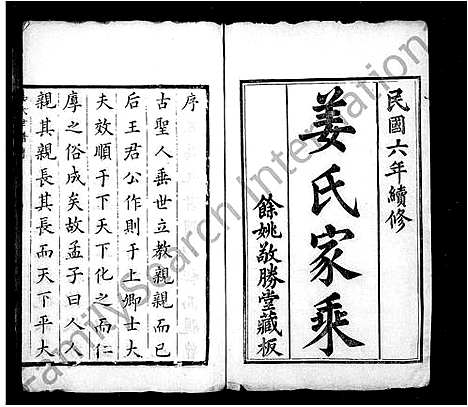 民國六年續修
姜氏家乘
餘姚敬勝堂藏板
序
古聖人垂世立教親親而已
后王君公作則于上卿士大
夫效順于下天下化之而仁
厚之俗成矣故孟子曰人人
親其親長其長而天下平大
FamilySearch International